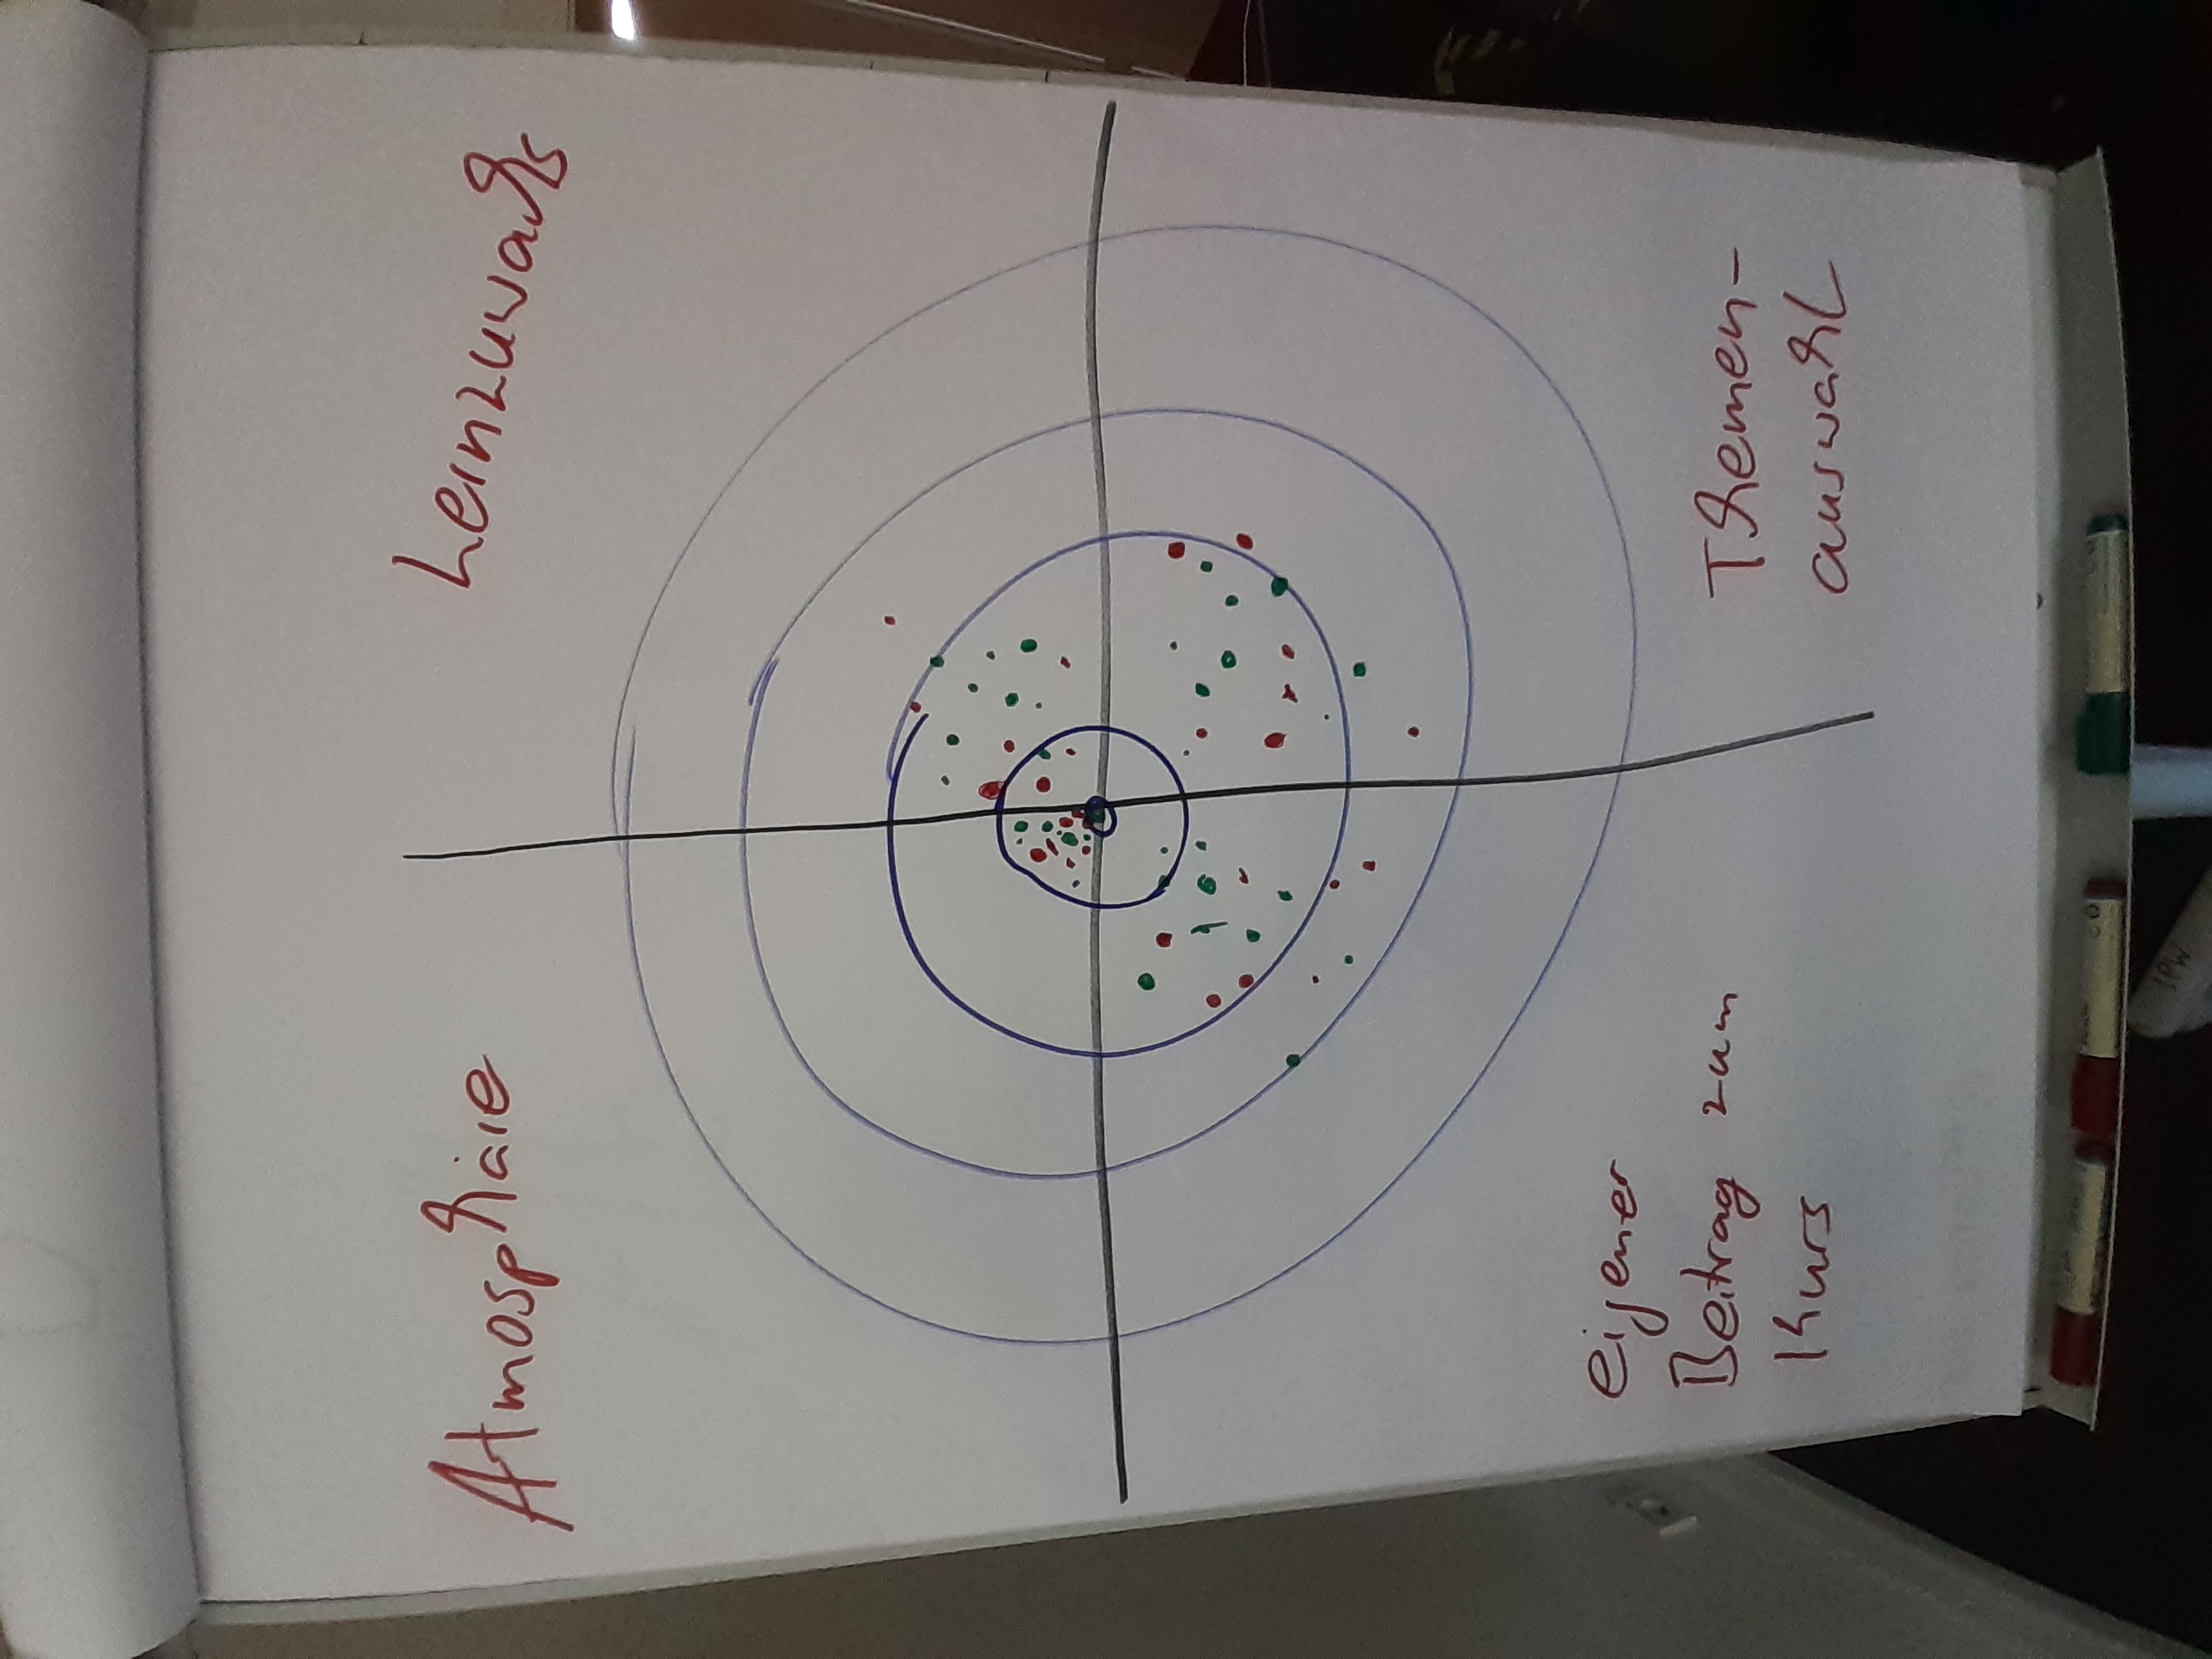 Atmosphäre
Lernzuwachs
eigener
Beitrag zum
Kurs
Themen-
auswahl